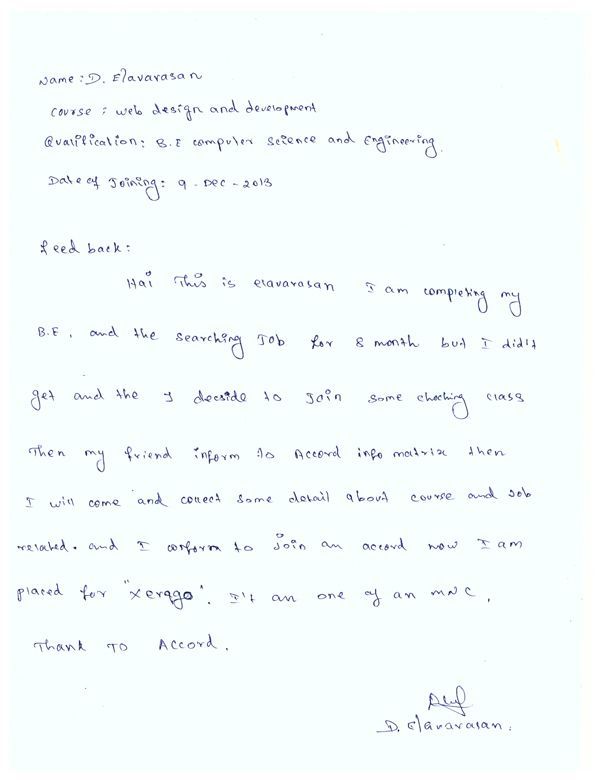 Name : D. Elavarasan
course : web design and development
Qualification : B.E computer science and Engineering.
Date of Joining : 9 - Dec - 2013
Feed back :
Hai This is elavarasan I am completing my
B.E, and the searching Job for 8 month but I didn't
get and the I decside to Join some choching class
Then my friend inform to Accord info matrix then
I will come and collect some detail about course and Job
related. and I conform to Join an accord now I am
placed for "xerago". It's an one of an MNC.
Thank To Accord.
D. Elavarasan.